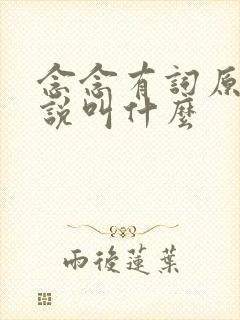 念念有詞原
說叫什麼
雨後蓮葉